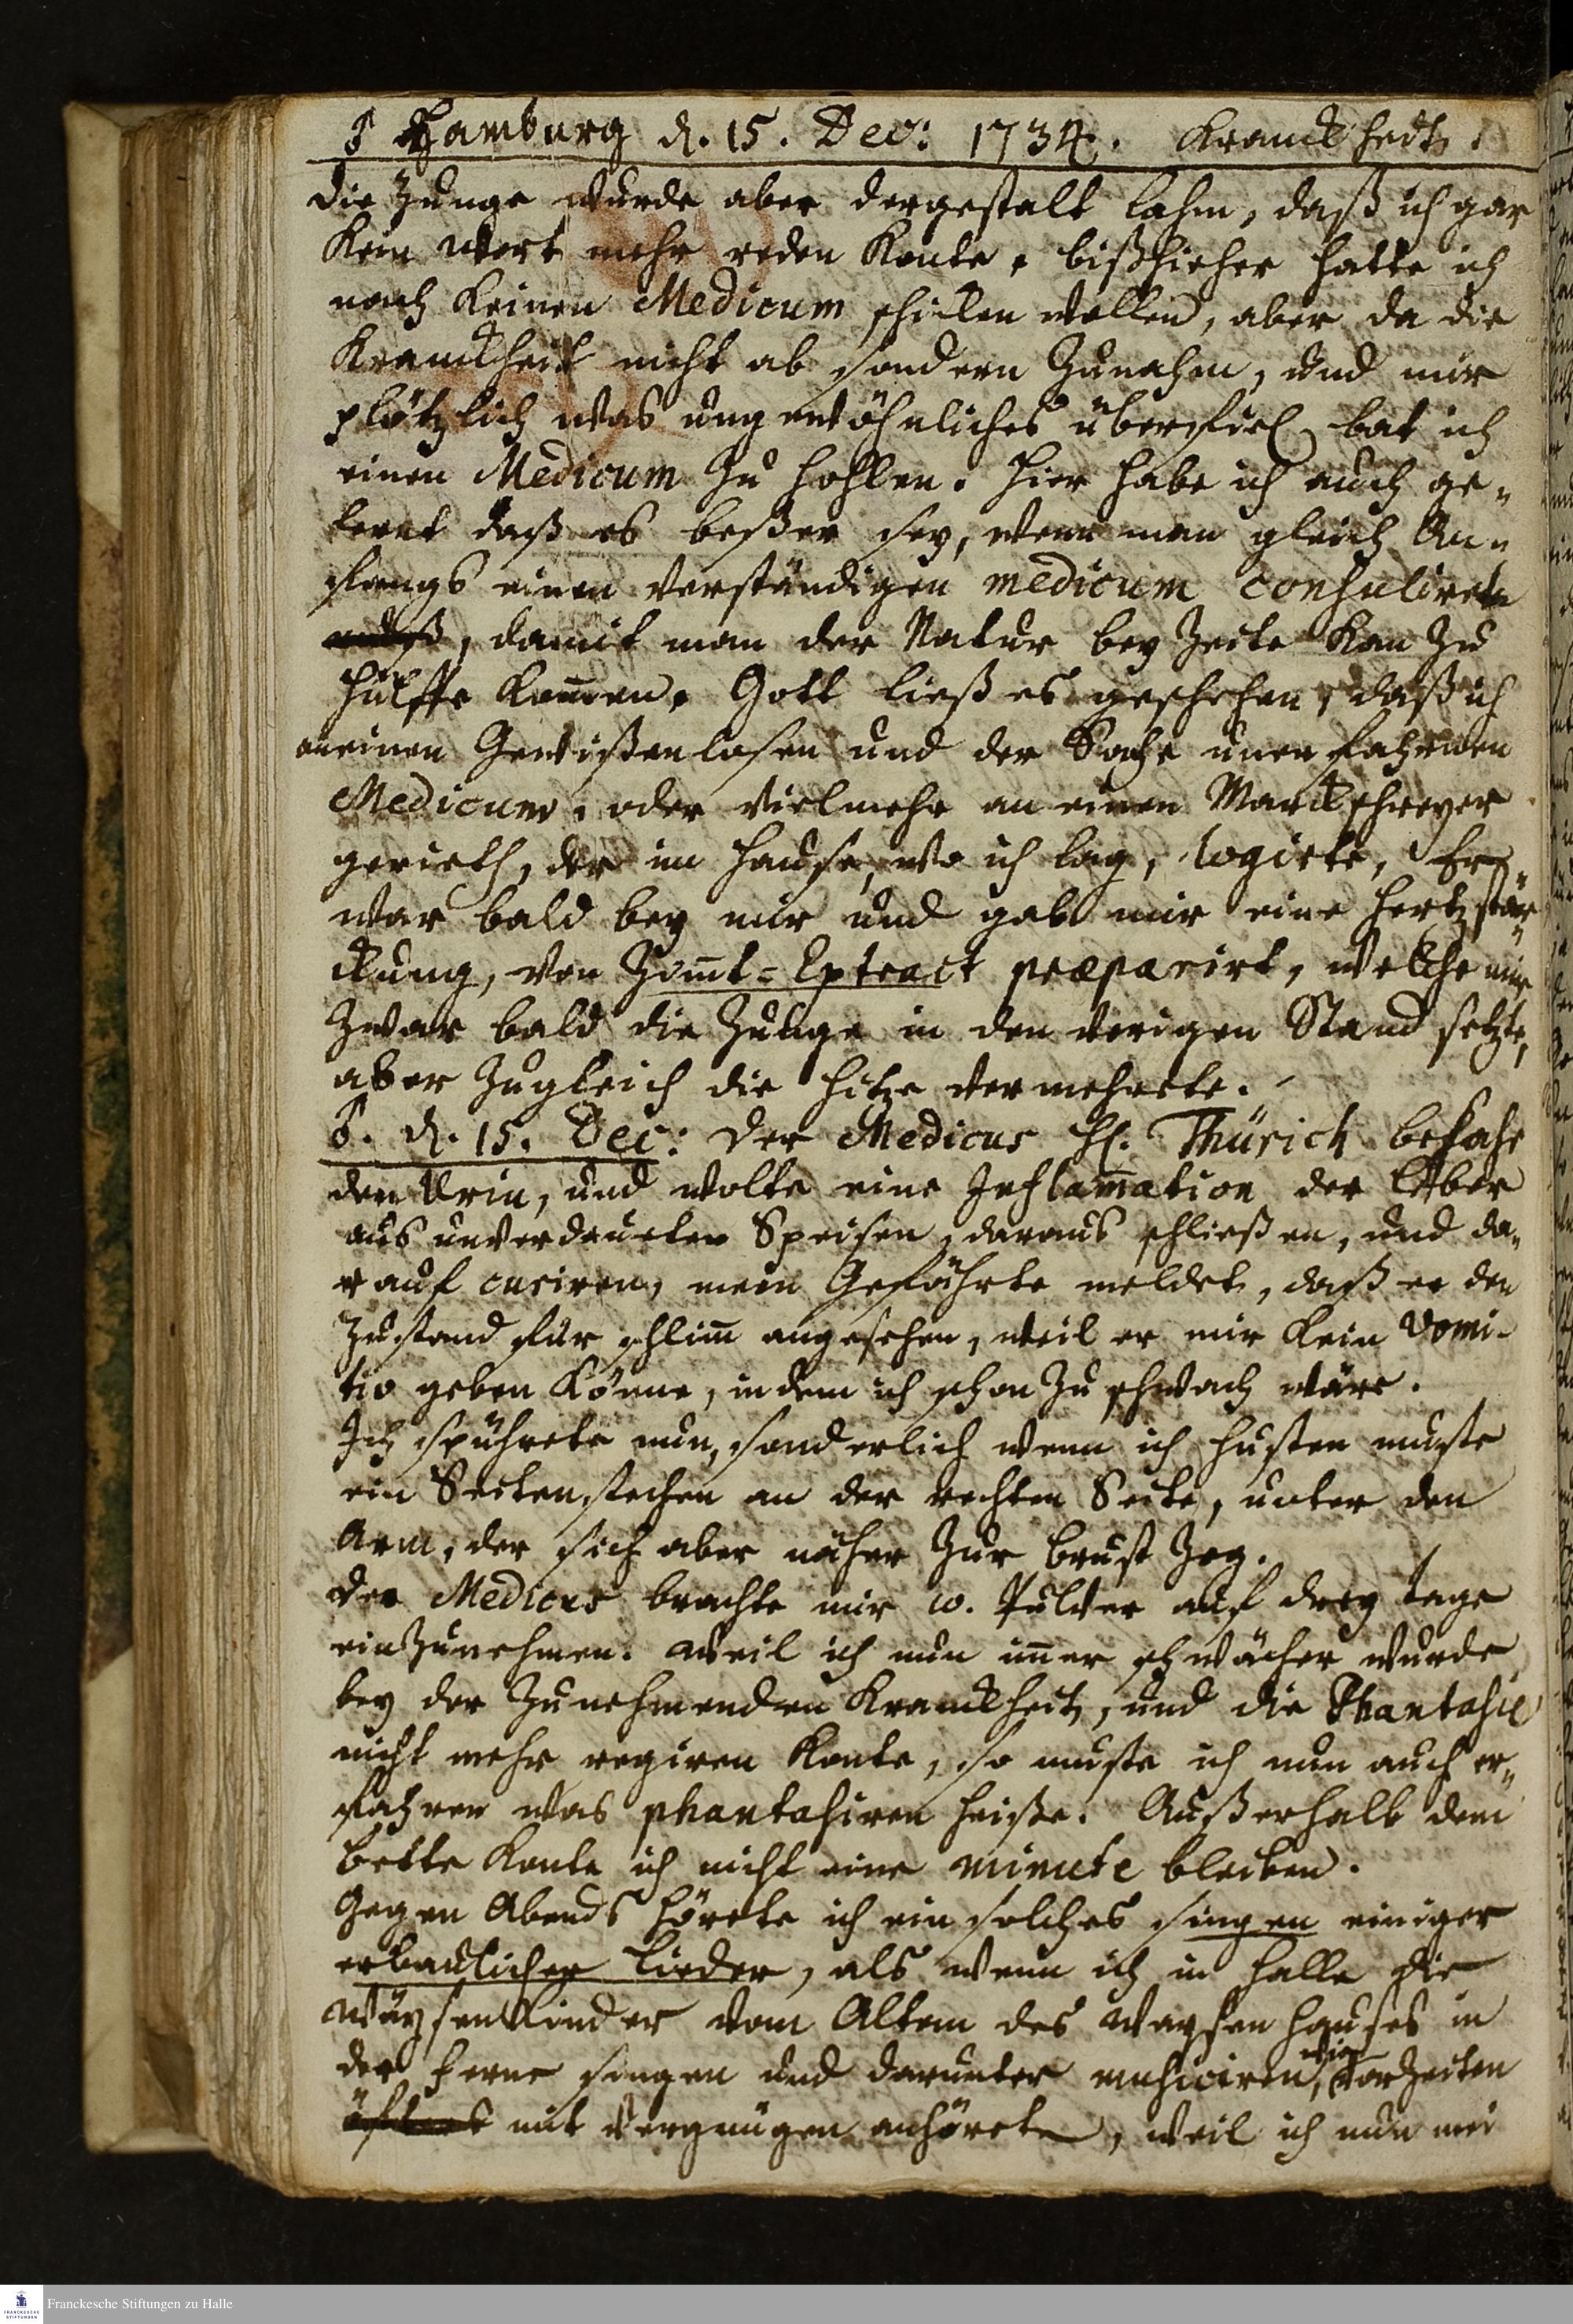 Hamburg d. 15. Dec: 1734. Kranckheit.
die Zunge wurde aber dergestalt lahm, daß ich gar
kein wort mehr reden konte. bißhieher hatte ich
noch keinen Medicum schicken wollen, aber da die
Kranckheit nicht ab sondern zunahm, und mir
plötzlich was ungewöhnliches überfiel, bat ich
einen Medicum zu hohlen. Hier habe ich auch ge„
lernt daß es beßer sey, wenn man gleich An„
fangs einen verständigen medicum consulirete
, damit man der Natur bey Zeite kan zu
hülffe kom̄en. Gott ließ es geschehen, daß ich
an einen Gewißenlosen und der Sache unerfahrnen
Medicum, oder vielmehr an einen Marcktschreyer
gerieth, der im Hause, wo ich lag, logirte, Er
war bald bey mir und gab mir eine Hertzstär„
ckung, von Zim̄t-Extract præparirt, welche mir
zwar bald die Zunge in den vorigen Stand setzte,
aber zugleich die Hitze vermehrete.
d. 15. Dec: der Medicus H. Thürich besahe
den Urin, und wolte eine Inflam̄ation der Leber
aus unverdaueten Speisen, daraus schließen, und da„
rauf curiren, mein Gefährte meldet, daß er den
Zustand für schlim̄ angesehen, weil er mir kein Vomi-
tiv geben könne, indem ich schon zu schwach wäre.
Ich spührete nun, sonderlich wenn ich husten muste
ein Seitenstechen an der rechten Seite, unter den
Arm, der sich aber näher zur brust zog.
der Medicus brachte mir 10. Pulver auf drey tage
einzunehmen. Weil ich nun im̄er schwächer wurde
bey der zunehmenden Kranckheit, und die Phantasie
nicht mehr regiren konte, so muste ich nun auch er„
fahren was phantasiren heiße. Außerhalb dem
bette konte ich nicht eine minute bleiben.
Gegen Abends hörete ich ein solches singen einiger
erbaulicher Lieder, als wenn ich in Halle die
Wäysenkinder vom Altan des Waysenhauses in
der ferne singen und darunter musiciren, wie vorzeiten
öfters mit vergnügen anhörete, weil ich nun mei
Franckesche Stiftungen zu Halle